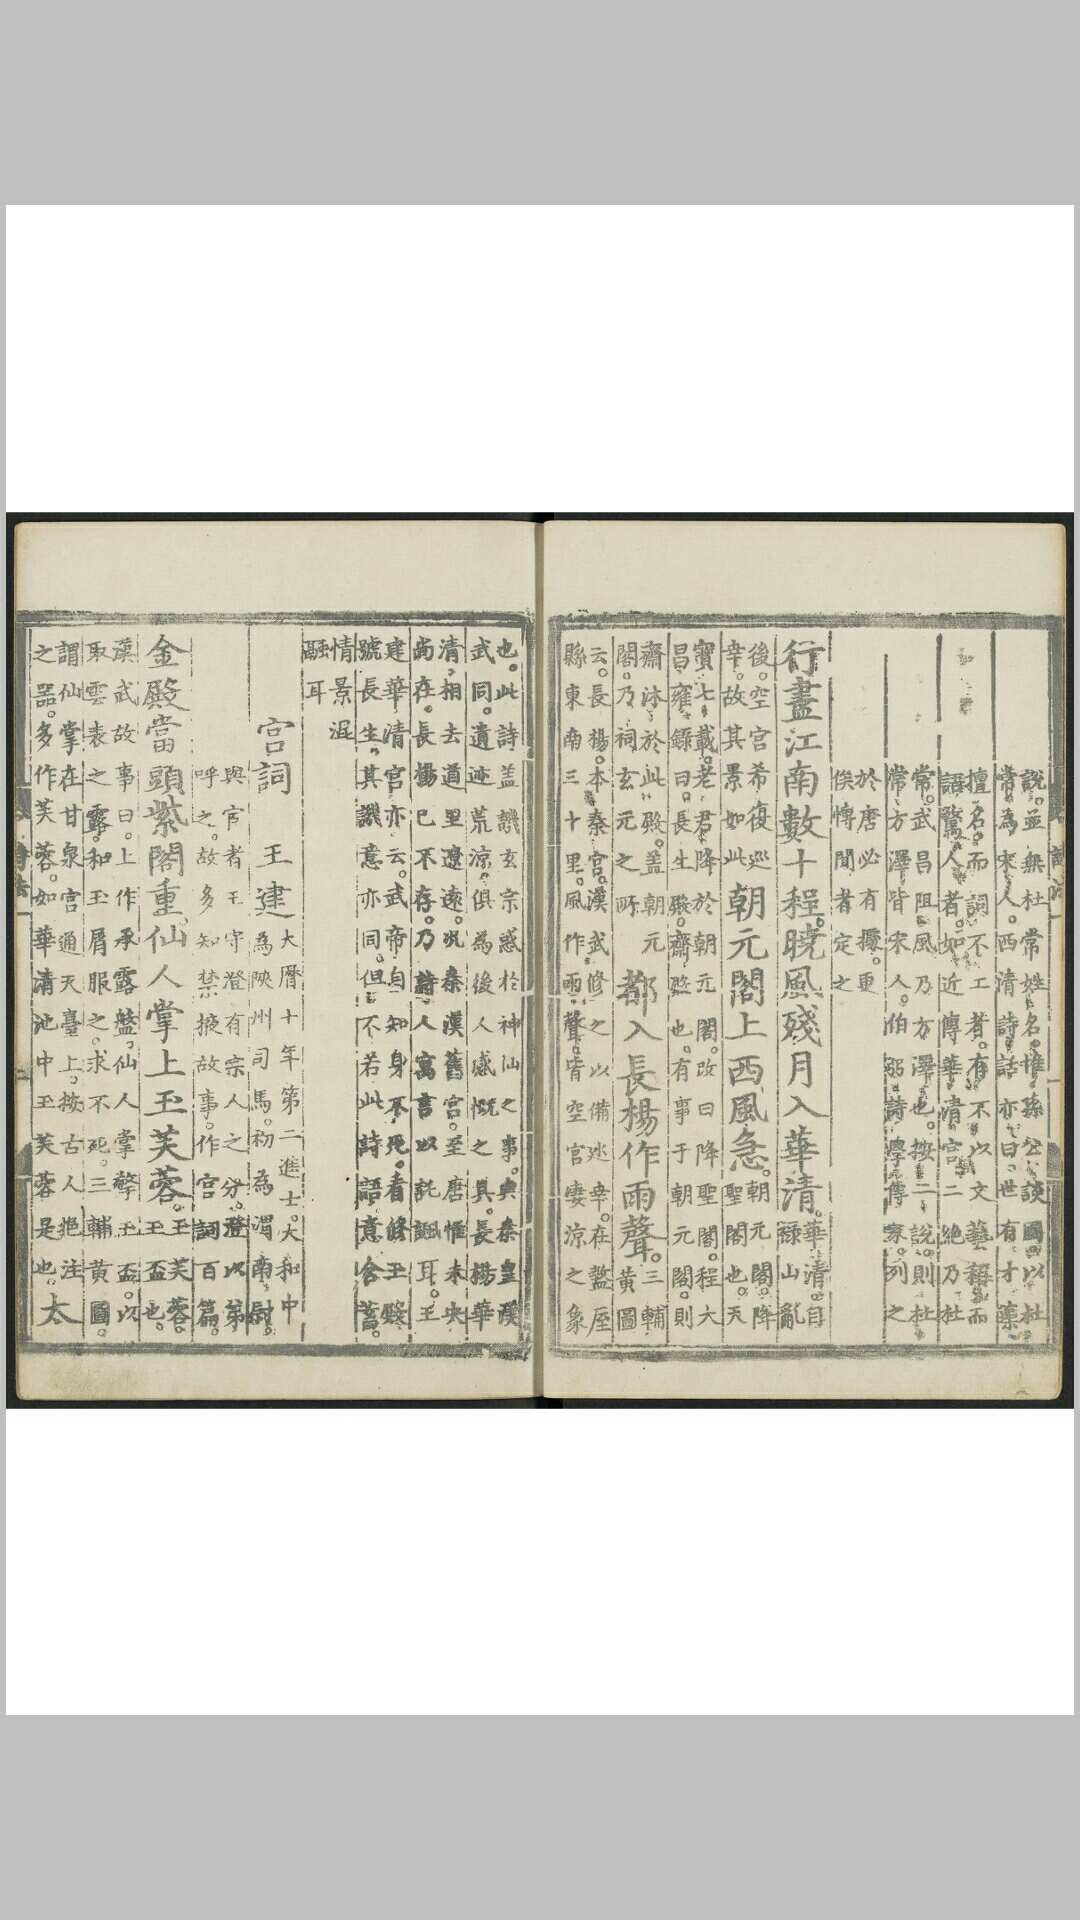 說。並無杜常姓名。惟孫公談圃以杜
常為宋人。西清詩話亦曰。世有才藻
擅名。而詞不工者。有不以文藝稱而
語驚人者。如近傳華清宮二絕乃杜
常。武昌阻風乃方澤也。按二說。則杜
常方澤皆宋人。伯弜詩學專家。列之
於唐必有據。更
俟博聞者定之
行盡江南數十程。曉風殘月入華清。
華清。自祿山亂
後。空宮希復巡
幸。故其景如此
朝元閣上西風急。
朝元閣。降聖閣也。天
寶七載。老君降於朝元閣。改曰降聖閣。程大
昌雍錄曰。長生殿。齋殿也。有事于朝元閣。則
齋沐於此殿。蓋朝元
閣。乃祠玄元之所
都入長楊作雨聲。
三輔黃圖
云。長楊。本秦宮。漢武修之以備巡幸。在盩厔
縣東南三十里。風作雨聲。皆空宮凄涼之象
也。此詩蓋譏玄宗惑於神仙之事。與秦皇漢
武同。遺迹荒涼。俱為後人感慨之具。長楊華
清。相去道里遼遠。况秦漢舊宮。至唐惟未央
尚在。長楊已不存。乃詩人寓言以託諷耳。王
建華清宮亦云。武帝自知身不死。看修玉殿
號長生。其譏意亦同。但不若此詩語意含蓄。
情景混
融耳
宮詞
王建
大曆十年第二進士。大和中
為陝州司馬。初為渭南尉。
與宦者王守澄有宗人之分。澄以弟
呼之。故多知禁掖故事。作宮詞百篇。
金殿當頭紫閣重。仙人掌上玉芙蓉。
玉芙蓉。
玉盃也。
漢武故事曰。上作承露盤。仙人掌擎玉盃。以
取雲表之露。和玉屑服之。求不死。三輔黃圖。
謂仙掌在甘泉宮通天臺上。按古人挹注
之器。多作芙蓉。如華清池中玉芙蓉是也。太